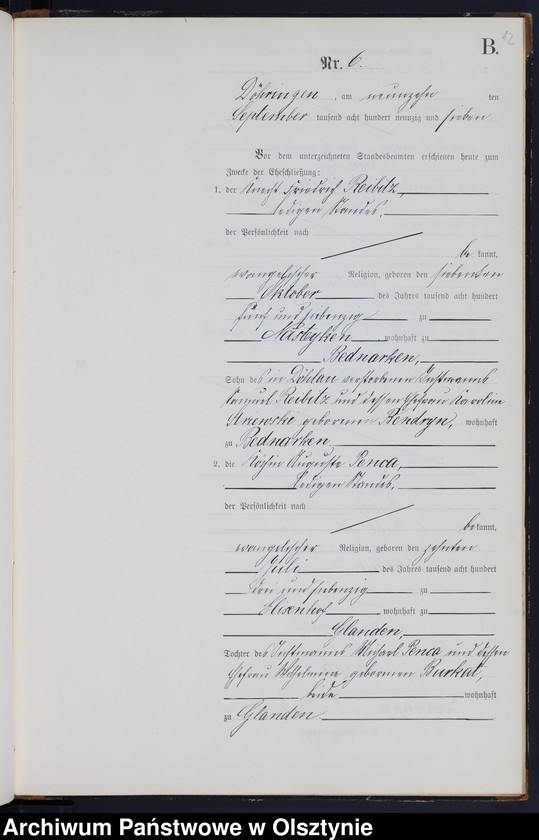 B. 12
Nr. 6.
Döhringen, am neunzehnten
September tausend acht hundert neunzig und sieben
Vor dem unterzeichneten Standesbeamten erschienen heute zum
Zwecke der Eheschließung:
1. der Knecht Friedrich Reibitz,
ledigen Standes,
der Persönlichkeit nach
bekannt,
evangelischer Religion, geboren den siebenten
Oktober des Jahres tausend acht hundert
fünf und siebenzig zu
wohnhaft zu
Bednarken,
Sohn des in Döhlau verstorbenen Instmanns
Samuel Reibitz und dessen Ehefrau Karoline
geborenen Bendryn, wohnhaft
zu Bednarken
2. die Köchin Auguste Penca,
ledigen Standes,
der Persönlichkeit nach
bekannt,
evangelischer Religion, geboren den zehnten
Juli des Jahres tausend acht hundert
drei und siebenzig zu
Elisenhof wohnhaft zu
Glanden,
Tochter des Instmanns Michael Penca und dessen
Ehefrau Wilhelmine geborenen Burkat,
beide wohnhaft
zu Glanden
Archiwum Państwowe w Olsztynie